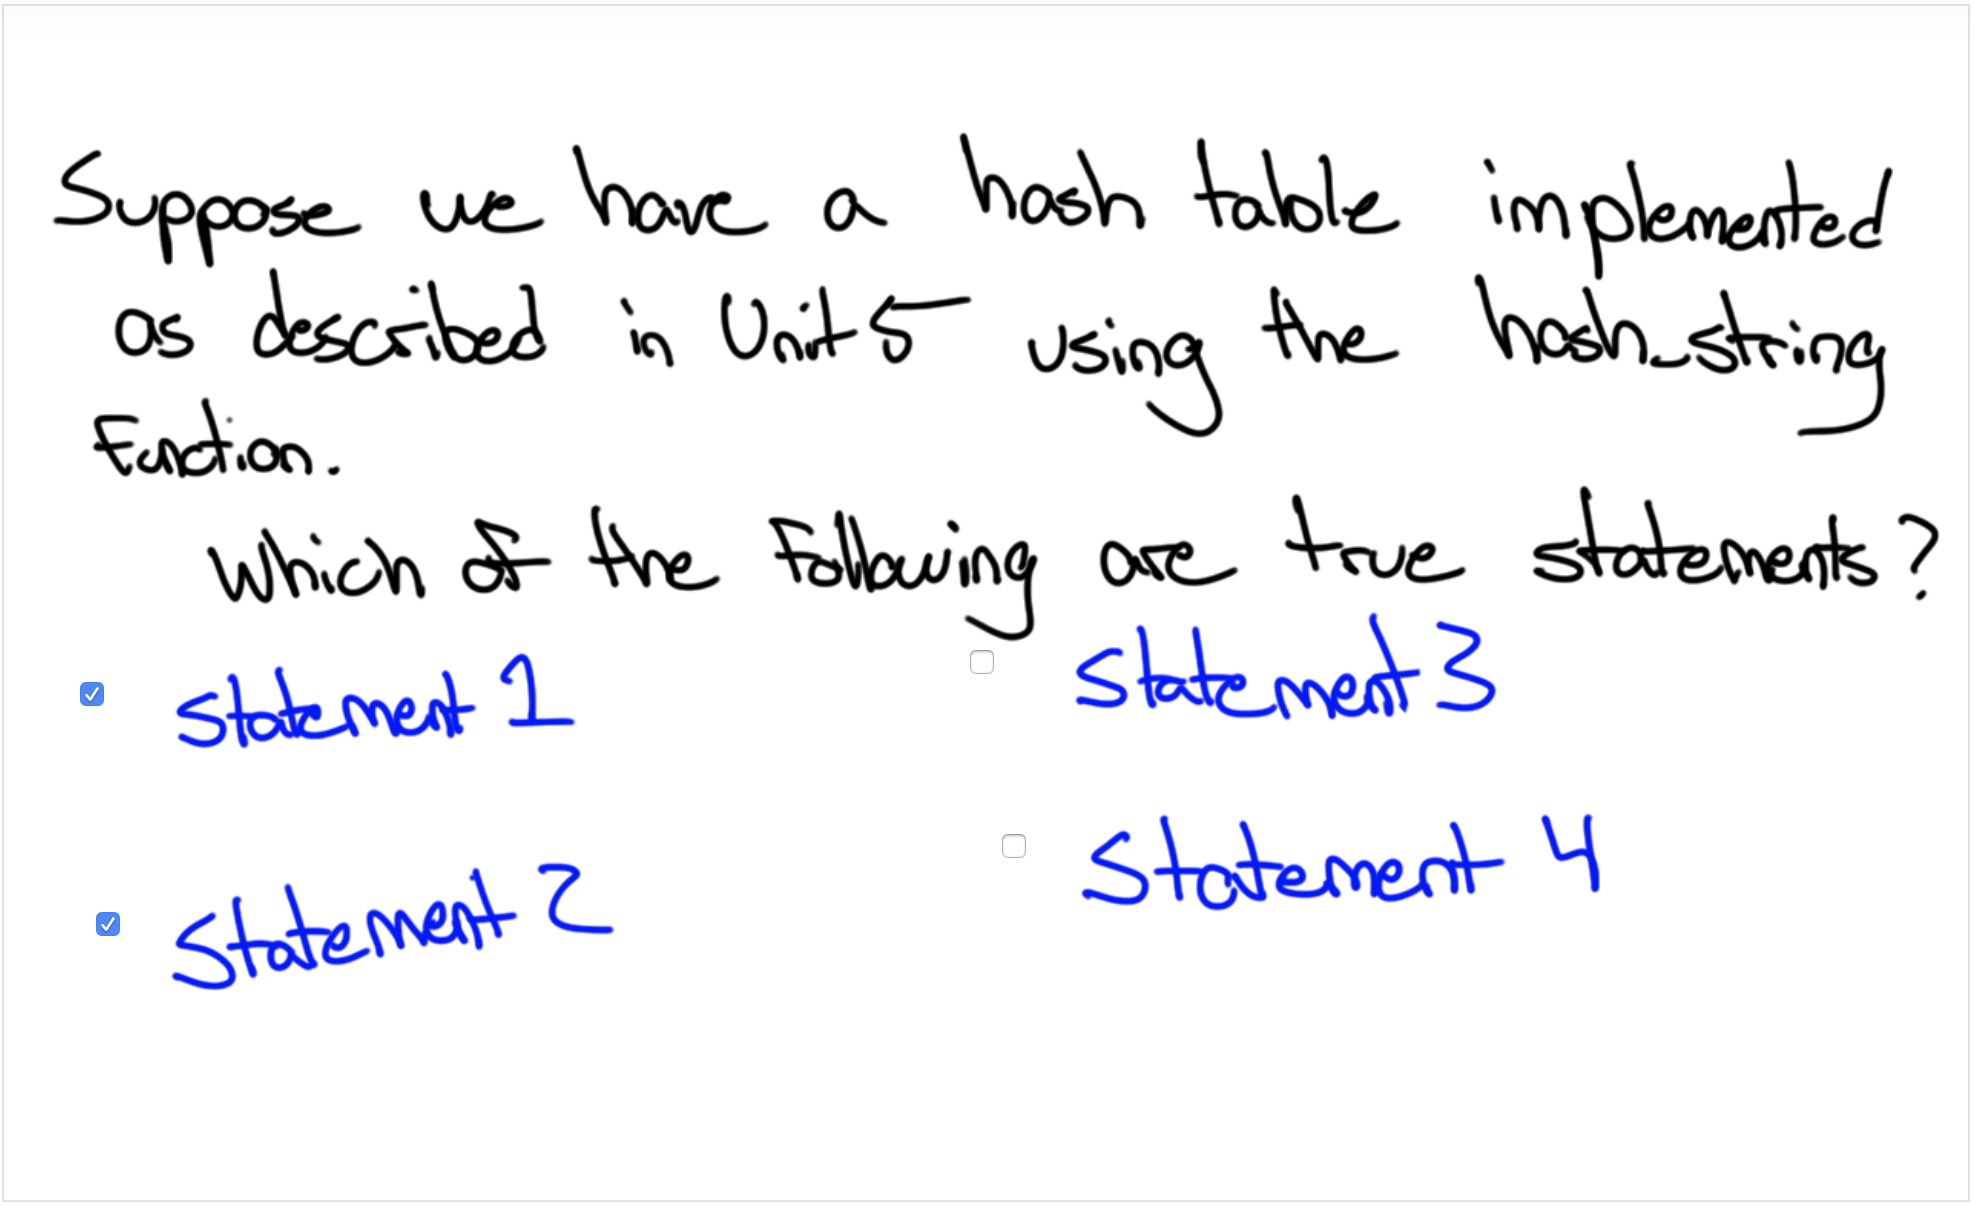 Suppose we have a hash table implemented
as described in Unit 5 using the hash_string
function.
Which of the following are true statements?
Statement 1
Statement 3
Statement 2
Statement 4